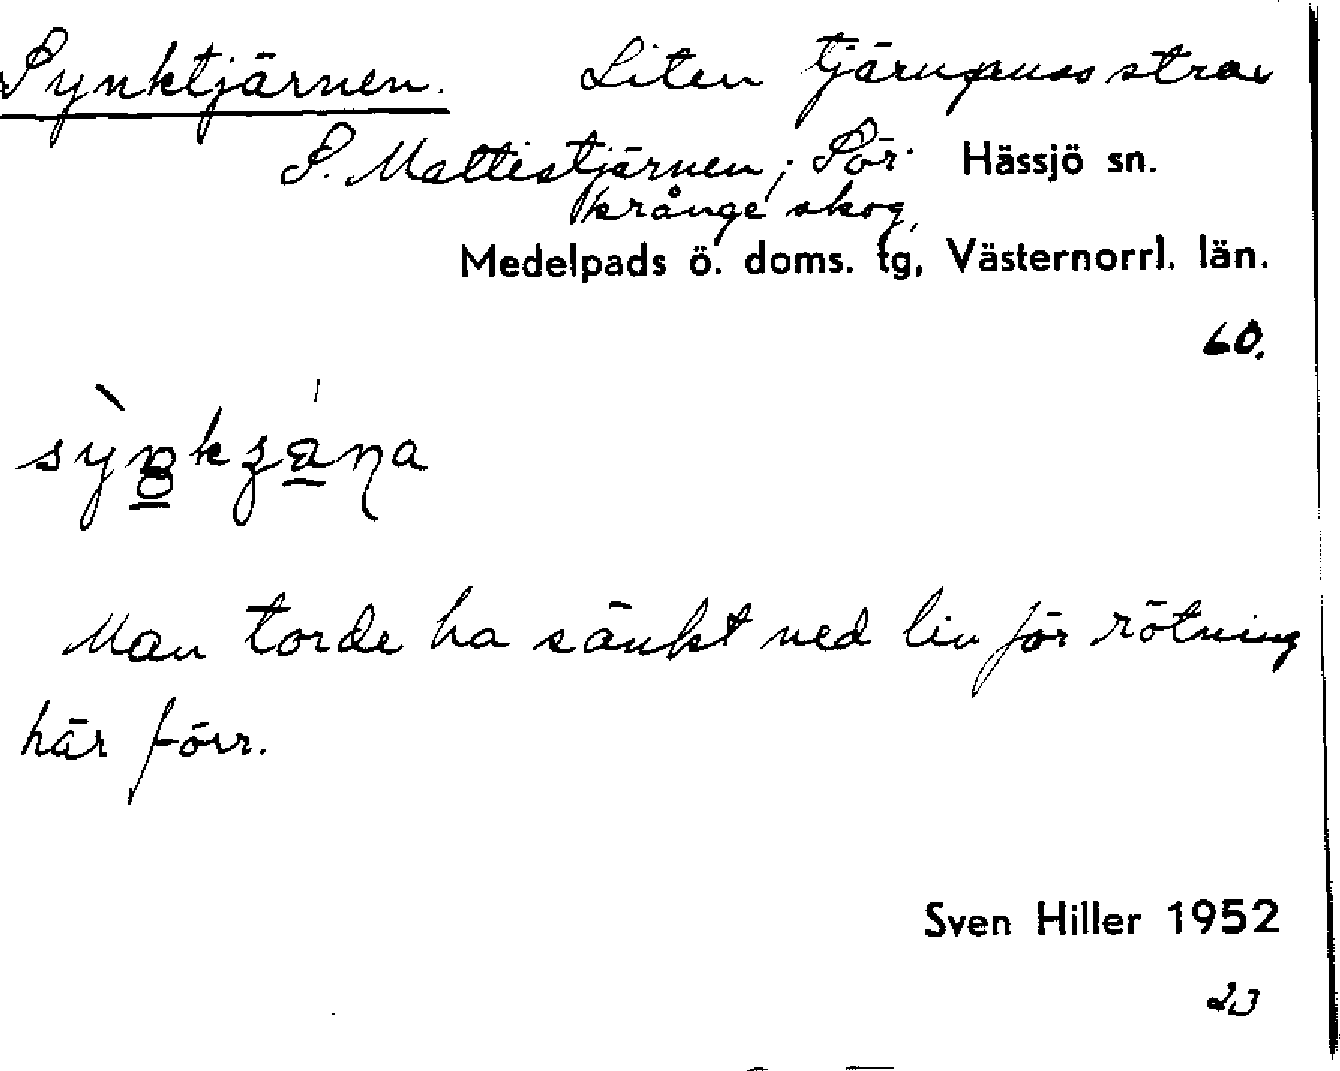 Synktjärnen. Liten tjärnpuss strax
S. Mattistjärnen; Sör- Hässjö sn.
krånge skog,
Medelpads ö. doms. tg, Västernorrl. län.
60.
Man torde ha sänkt ned lin för rötning
här förr.
Sven Hiller 1952
23